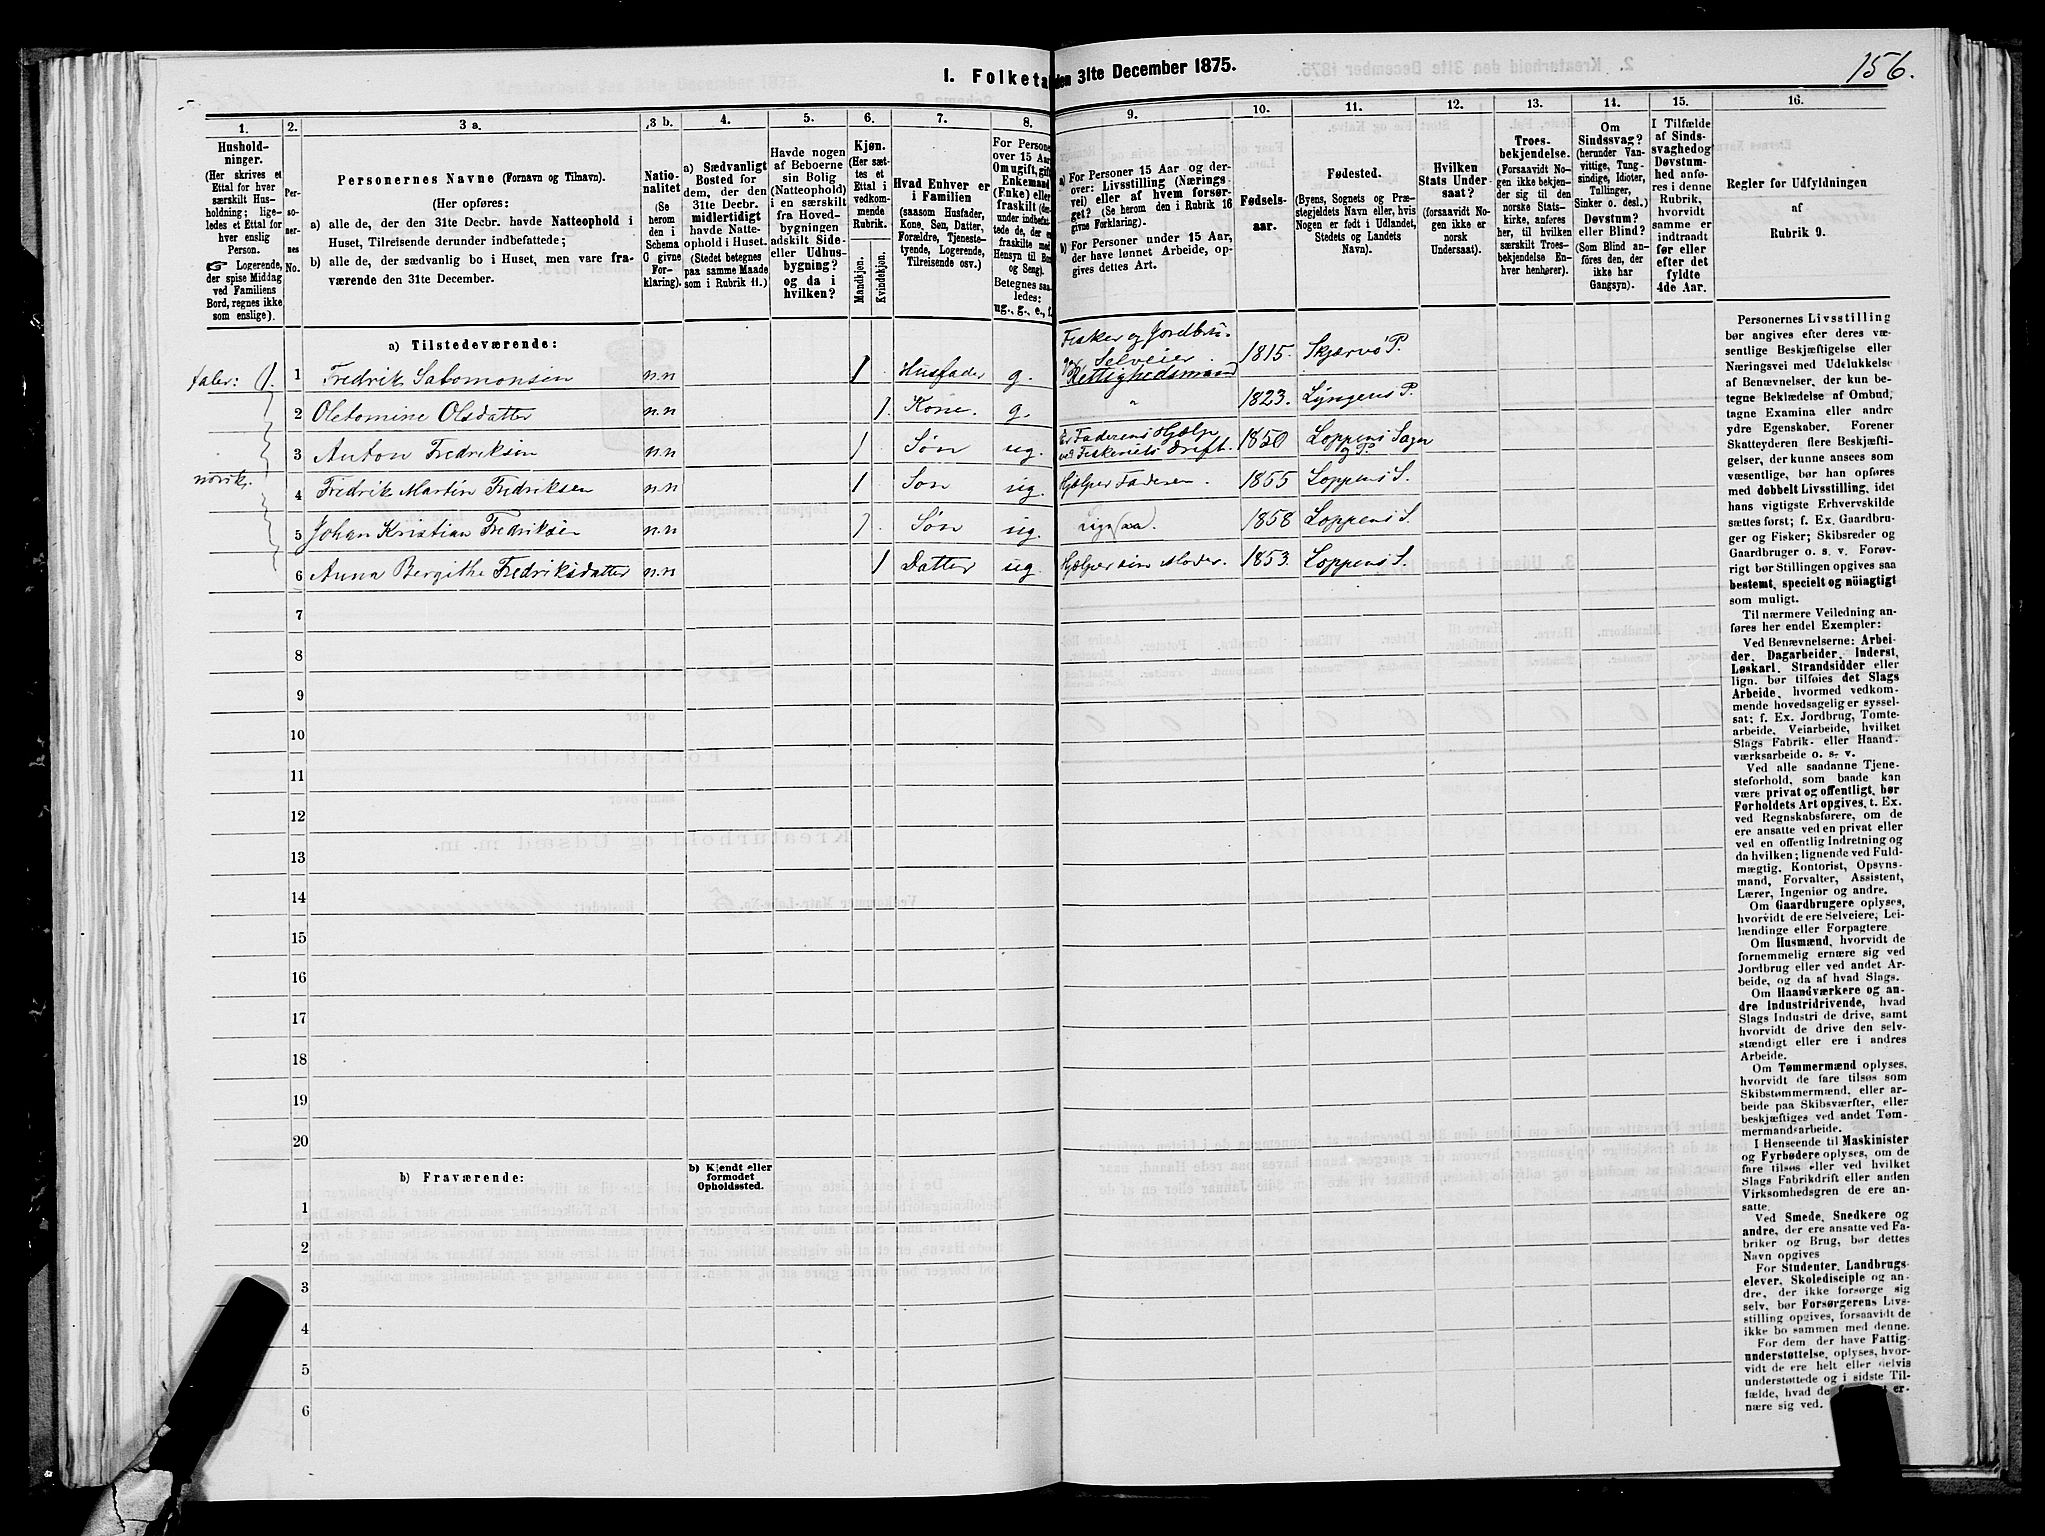 156.
I. Folketal den 31te December 1875.
1. 2. 3 a. 3 b. 4. 5. 6. 7. 8. 9. 10. 11. 12. 13. 14. 15. 16.
Hushold-
ninger.
(Her skrives et
Ettal for hver
særskilt Hus-
holdning; lige-
ledes et Ettal for
hver enslig
Person.
☞ Logerende,
der spise Middag
ved Familiens
Bord, regnes ikke
som enslige).
Per-
so-
ner-
nes
No.
Personernes Navne (Fornavn og Tilnavn).
(Her opføres:
a) alle de, der den 31te Decbr. havde Natteophold i
Huset, Tilreisende derunder indbefattede;
b) alle de, der sædvanlig bo i Huset, men vare fra-
værende den 31te December.
Natio-
nalitet
(Se
herom
den i
Schema
G givne
For-
klaring).
a) Sædvanligt
Bosted for
dem, der den
31te Decbr.
midlertidigt
havde Natte-
ophold i Huset.
(Stedet betegnes
paa samme Maade
som i Rubrik 11.)
Havde nogen
af Beboerne
sin Bolig
(Natteophold)
i en særskilt
fra Hoved-
bygningen
adskilt Side-
eller Udhus-
bygning?
og da i
hvilken?
Kjøn.
(Her sæt-
tes et
Ettal i
vedkom-
mende
Rubrik.
Mandkjøn.
Kvindekjøn.
Hvad Enhver er
i Familien
(saasom Husfader,
Kone, Søn, Datter,
Forældre, Tjeneste-
tyende, Logerende,
Tilreisende osv.)
For Persone
over 15 Aar
Om ugift, gift
Enkemand
(Enke) eller
fraskilt (der-
under indbefat-
tede de, der ere
fraskilte med
Hensyn til Bord
og Seng).
Betegnes saa-
ledes:
ug., g., e., f.
a) For Personer 15 Aar og der-
over: Livsstilling (Nærings-
vei) eller af hvem forsør-
get? (Se herom den i Rubrik 16
givne Forklaring).
b) For Personer under 15 Aar,
der have lønnet Arbeide, op-
gives dettes Art.
Fødsels-
aar.
Fødested.
(Byens, Sognets og Præ-
stegjeldets Navn eller, hvis
Nogen er født i Udlandet,
Stedets og Landets
Navn).
Hvilken
Stats Under-
saat?
(forsaavidt No-
gen ikke er
norsk
Undersaat).
Troes-
bekjendelse.
(Forsaavidt No-
gen ikke bekjen-
der sig til den
norske Stats-
kirke, anføres
her, til hvilken
særskilt Troes-
bekjendelse En-
hver henhører).
Om
Sindssvag?
(herunder Van-
vittige, Tung-
sindige, Idioter,
Tullinger,
Sinker o. desl.)
Døvstum?
eller Blind?
(Som Blind an-
føres den, der
ikke har
Gangsyn).
I Tilfælde
af Sinds-
svaghed og
Døvstum-
hed anfø-
res i denne
Rubrik,
hvorvidt
samme er
indtraadt
før eller
efter det
fyldte
4de Aar.
Regler for Udfyldningen
af
Rubrik 9.
a) Tilstedeværende:
taler: 1. 1 Fredrik Salomonsen n.n 1 Husfader g. Fisker og Jordbru- Selveier. Rettighedsmand 1815. Skjærvö P.
2 Oletomine Olsdatter n.n 1. Kone. g. " 1823. Lyngens P.
3 Anton Fredriksen n.n 1 Søn ug. Er Faderens Hjælp ved Fiskeriets Drift. 1850 Loppens Sogn og P.
norsk. 4 Fredrik Martin Fredriksen n.n 1 Søn ug. Hjælper Faderen. 1855 Loppens S.
5 Johan Kristian Fredriksen n.n 1. Søn ug. Ligesaa. 1858 Loppens S.
6 Anna Bergithe Fredriksdatter n.n 1 Datter ug. Hjælper sin Moder. 1853. Loppens S.
7
8
9
10
11
12
13
14
15
16
17
18
19
20
b) Fraværende:
b) Kjendt eller
formodet
Opholdssted.
1
2
3
4
5
6
Personernes Livsstilling
bør angives efter deres væ-
sentlige Beskjæftigelse eller
Næringsvei med Udelukkelse
af Benævnelser, der kun be-
tegne Beklædelse af Ombud,
tagne Examina eller andre
ydre Egenskaber. Forener
Skatteyderen flere Beskjæfti-
gelser, der kunne ansees som
væsentlige, bør han opføres
med dobbelt Livsstilling, idet
hans vigtigste Erhvervskilde
sættes først; f. Ex. Gaardbru-
ger og Fisker; Skibsreder og
Gaardbruger o. s. v. Forøv-
rigt bør Stillingen opgives saa
bestemt, specielt og nöiagtigt
som muligt.
Til nærmere Veiledning an-
føres her endel Exempler:
Ved Benævnelserne: Arbei-
der, Dagarbeider, Inderst,
Løskarl, Strandsidder eller
lign. bør tilføies det Slags
Arbeide, hvormed vedkom-
mende hovedsagelig er syssel-
sat; f. Ex. Jordbrug, Tomte-
arbeide, Veiarbeide, hvilket
Slags Fabrik- eller Haand-
værksarbeide o. s. v.
Ved alle saadanne Tjene-
steforhold, som baade kan
være privat og offentligt, bør
Forholdets Art opgives, t. Ex.
ved Regnskabsførere, om de
ere ansatte ved en privat eller
ved en offentlig Indretning og
da hvilken; lignende ved Fuld-
mægtig, Kontorist, Opsyns-
mand, Forvalter, Assistent,
Lærer, Ingeniør og andre.
Om Gaardbrugere oplyses,
hvorvidt de ere Selveiere, Lei-
lændinge eller Forpagtere.
Om Husmænd, hvorvidt de
fornemmelig ernære sig ved
Jordbrug eller ved andet Ar-
beide, og da af hvad Slags.
Om Haandværkere og an-
dre Industridrivende, hvad
Slags Industri de drive, samt
hvorvidt de drive den selv-
stændigt eller ere i andres
Arbeide.
Om Tømmermænd oplyses,
hvorvidt de fare tilsøs som
Skibstømmermænd, eller ar-
beide paa Skibsværfter, eller
beskjæftiges ved andet Tøm-
mermandsarbeide.
I Henseende til Maskinister
og Fyrbødere oplyses, om de
fare tilsøs eller ved hvilket
Slags Fabrikdrift eller anden
Virksomhedsgren de ere an-
satte.
Ved Smede, Snedkere og
andre, der ere ansatte ved Fa-
briker og Brug, bør dettes
Navn opgives
For Studenter, Landbrugs-
elever, Skoledisciple og an-
dre, der ikke forsørge sig
selv, bør Forsørgerens Livs-
stilling opgives, forsaavidt de
ikke bo sammen med denne.
For dem, der have Fattig-
understøttelse, oplyses, hvor-
vidt de ere helt eller delvis
understøttede og i sidste Til-
fælde, hvad de er-
nære sig ved.